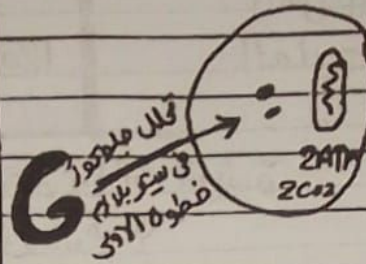 تحلل جلوكوز
في سيتوبلازم
خطوة الاولى
G
2ATP
2CO2